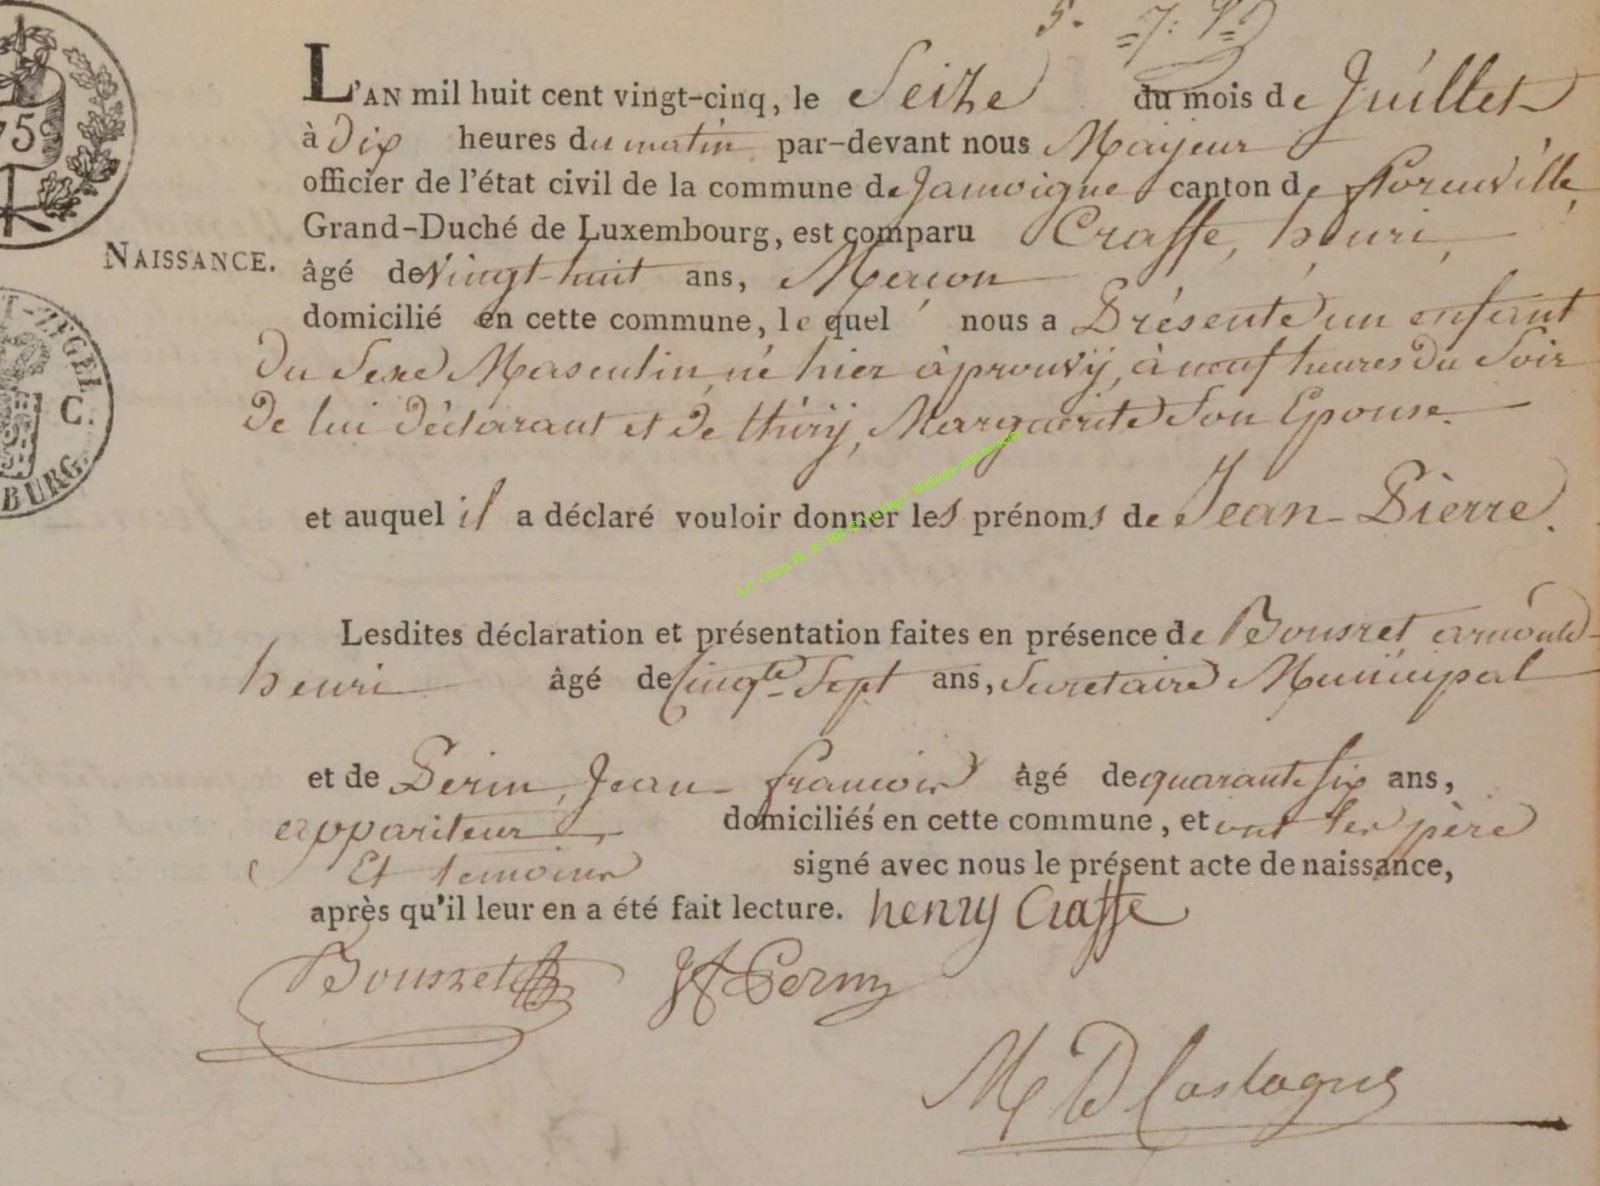 5.
75
L'AN mil huit cent vingt-cinq, le Seize du mois de Juillet
à dix heures du matin par-devant nous Mayeur
officier de l'état civil de la commune de Jamoigne canton de florenville,
Grand-Duché de Luxembourg, est comparu Crasse, henri,
NAISSANCE.
âgé de vingt-huit ans, Macon
domicilié en cette commune, le quel nous a Présenté un enfant
du Sexe Masculin, né hier à prouvÿ, à neuf heures du Soir
de lui déclarant et de thirÿ, Marguerite Son Epouse.
ZEGEL
C.
BURG.
et auquel il a déclaré vouloir donner les prénoms de Jean-Pierre.
Lesdites déclaration et présentation faites en présence de Bousret arnould
henri âgé de Cinqte Sept ans, Secretaire Municipal
et de Perin, Jean francois âgé de quarante six ans,
appariteur domiciliés en cette commune, et ont les père
Et temoins signé avec nous le présent acte de naissance,
après qu'il leur en a été fait lecture. henry Crasse
Bousret JF Perin